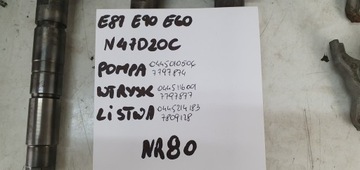 E87 E90 E60
N47D20C
POMPA 0445010506
7797874
WTRYSK 0445116001
7797877
LISTWA 0445214183
7809128
NR80